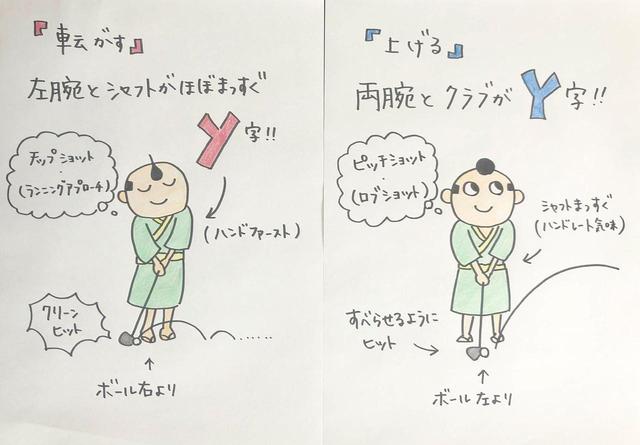 『転がす』
左腕とシャフトがほぼまっすぐ
y字!!
チップショット
・
(ランニングアプローチ)
(ハンドファースト)
クリーン
ヒット
ボール右より
『上げる』
両腕とクラブが Y字!!
ピッチショット
・
(ロブショット)
シャフトまっすぐ
(ハンドレート気味)
すべらせるように
ヒット
ボール左より